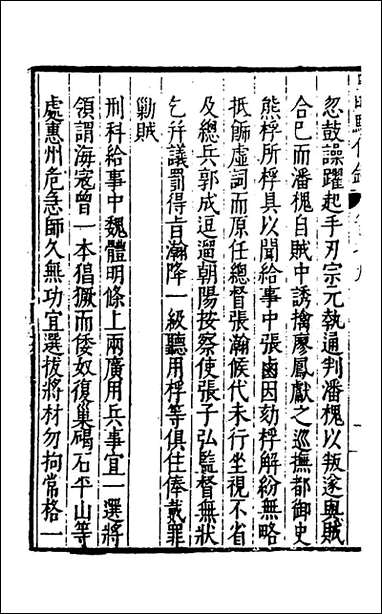 忽鼓譟躍起手刃宗元執通判潘槐以叛遂與賊
合已而潘槐自賊中誘擒廖鳳獻之巡撫都御史
熊桴所桴具以聞給事中張鹵因劾桴解紛無略
抵飾虛詞而原任總督張瀚候代未行坐視不省
及總兵郭成逗遛朝陽按察使張子弘監督無狀
乞并議罰得旨瀚降一級聽用桴等俱住俸戴罪
勦賊
刑科給事中魏體明條上兩廣用兵事宜一選將
領謂海寇曾一本猖獗而倭奴復巢碣石平山等
處惠州危急師久無功宜選拔將材勿拘常格一